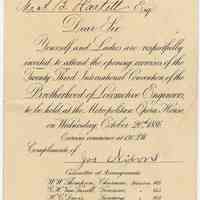 Mr A. B. Hartell Esq.
Dear Sir
Yourself and Ladies are respectfully
invited to attend the opening exercises of the
Twenty Third International Convention of the
Brotherhood of Locomotive Engineers,
to be held at the Metropolitan Opera House
on Wednesday October 20th 1886.
Exercises commence at
Compliments of
Committee of Arrangements
W. W. Thompson, Chairman, Division 105
Division 145
Division 105